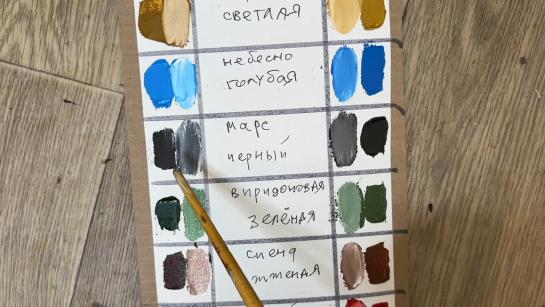 светлая
небесно
голубая
марс
чёрный
виридоновая
зелёная
сиена
жженая